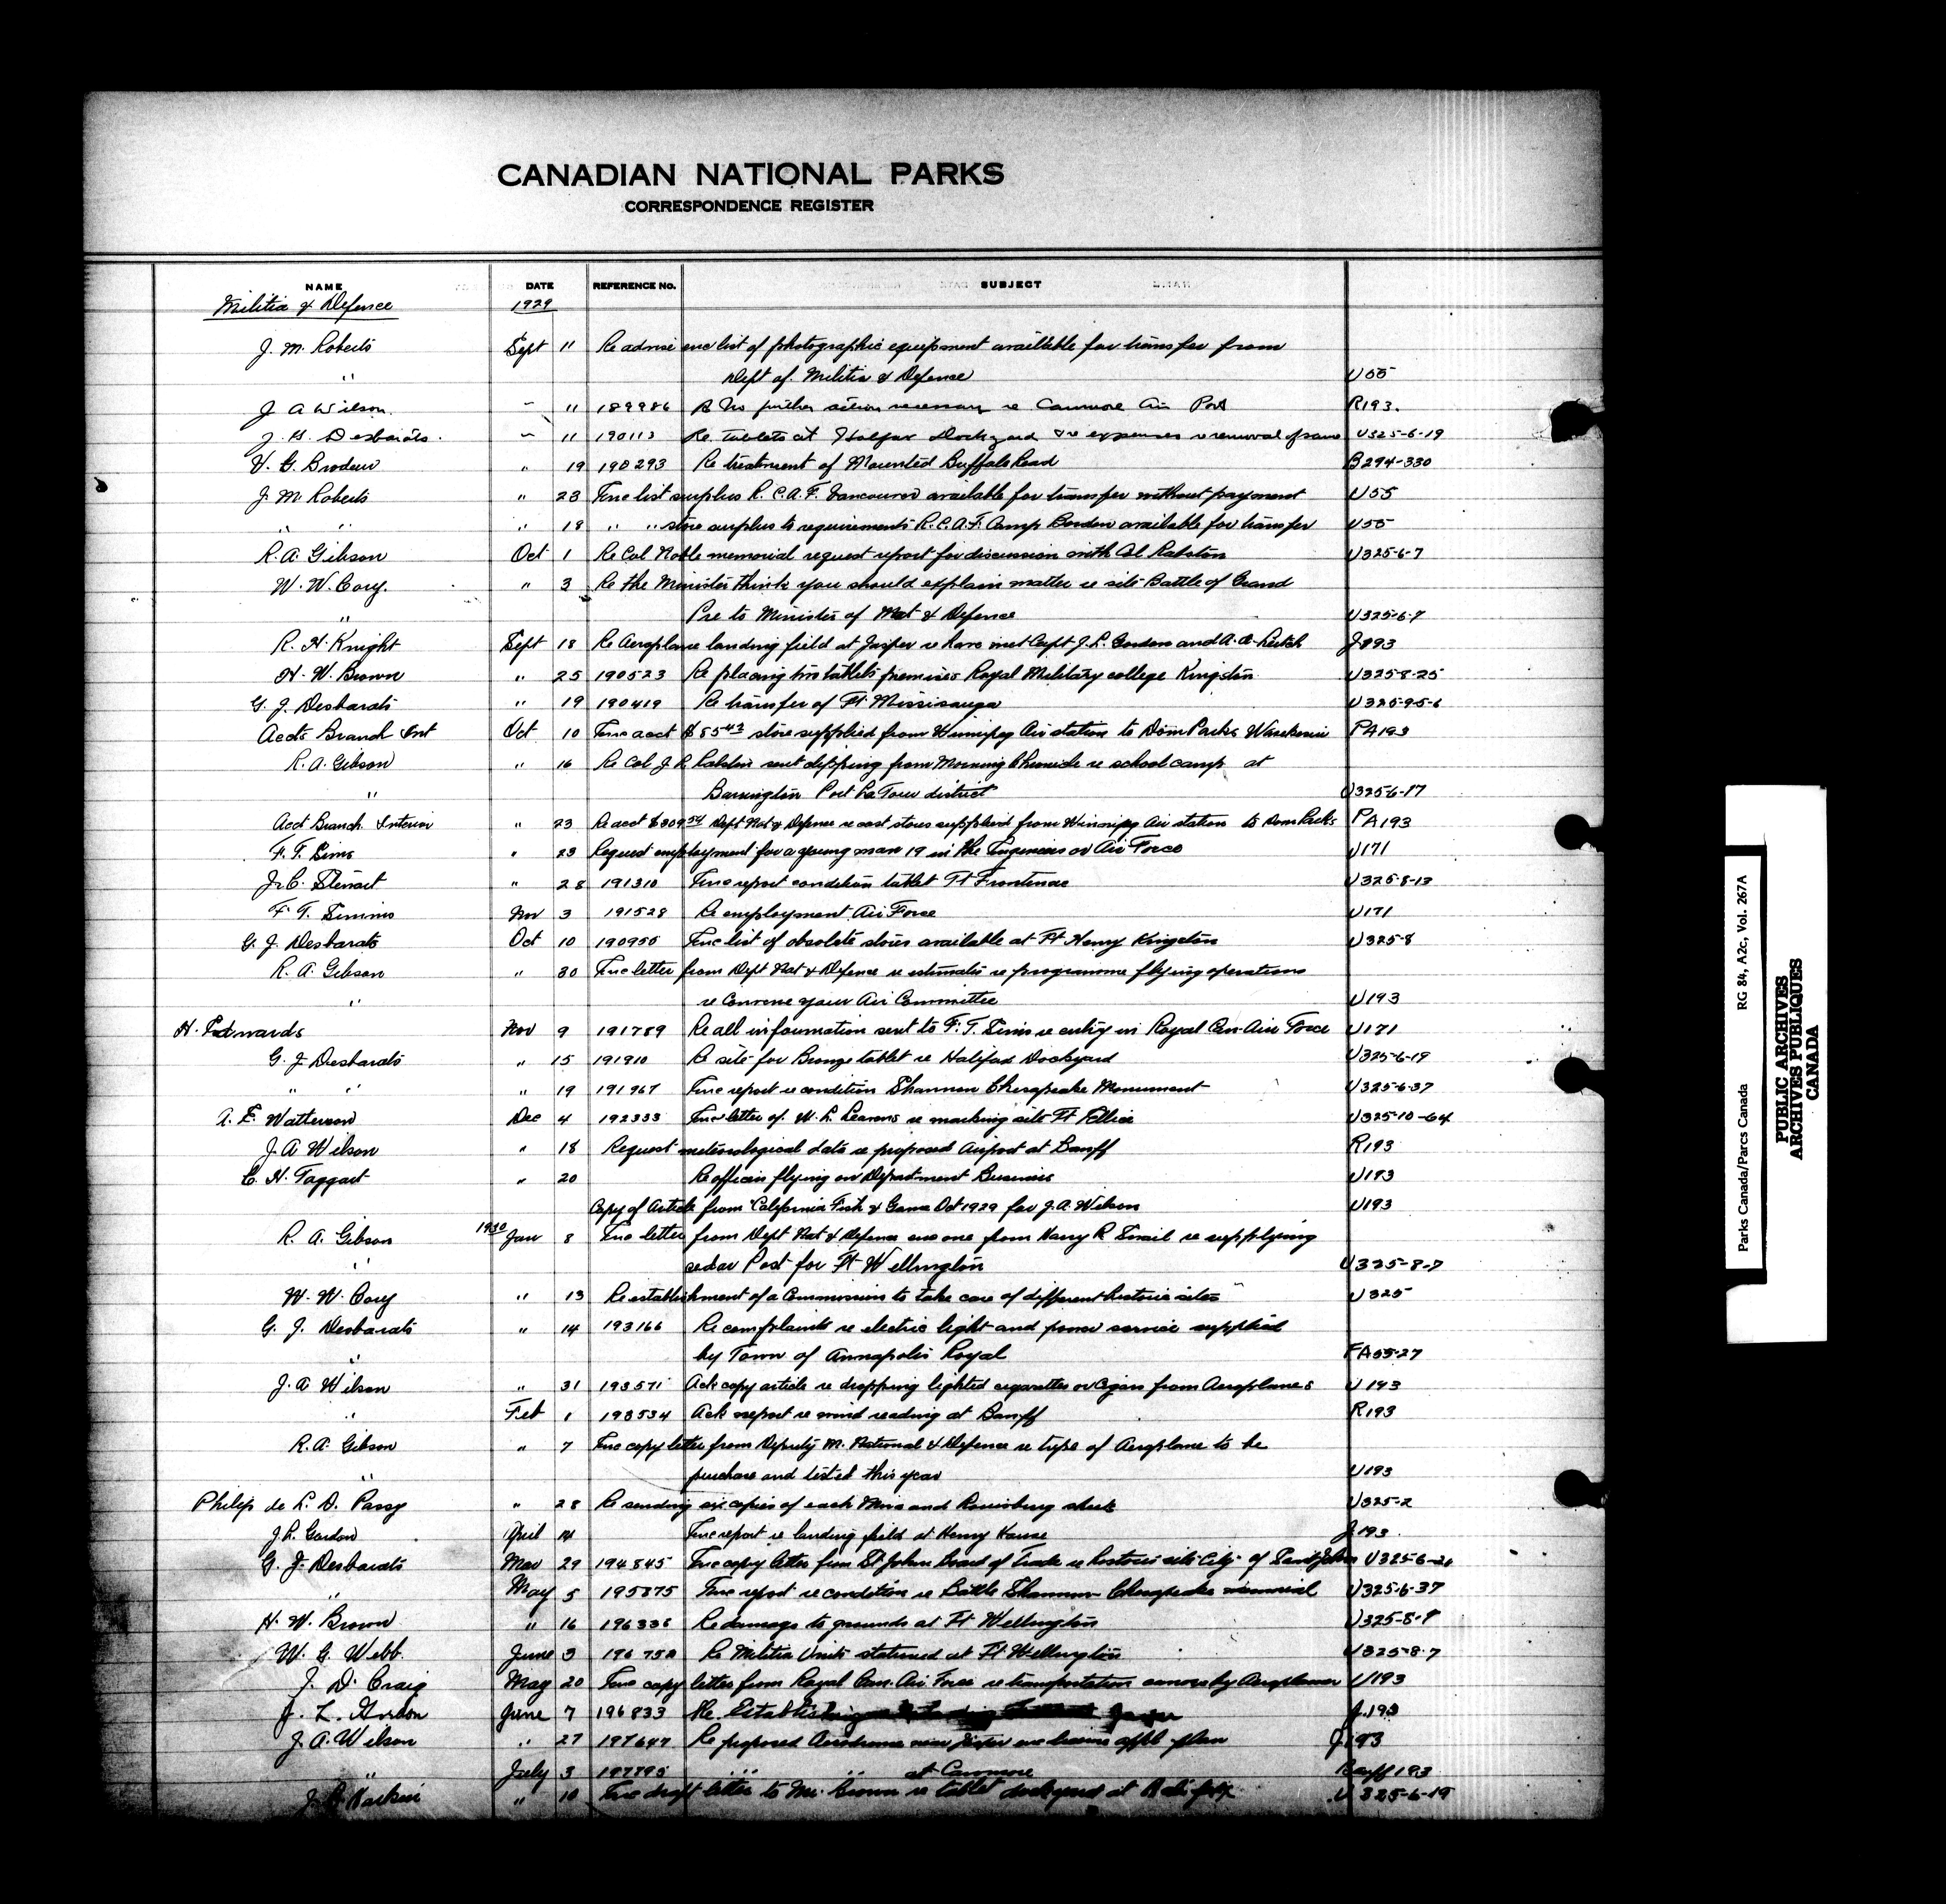 CANADIAN NATIONAL PARKS
CORRESPONDENCE REGISTER
NAME DATE REFERENCE No. SUBJECT
Militia & Defence 1929
J. M. Roberts Sept 11 Re advise enc list of photographic equipment available for transfer from
" Dept of Militia & Defense U55
J A Wilson. " 11 189986 Re No further action necessary re Canmore Air Port R193.
J. G. Desbarats. " 11 190113 Re. tablets at Halifax Dockyard & re expenses re removal of same U325-6-19
V. G. Brodeur " 19 190293 Re treatment of Mounted Buffalo Head B294-330
J. M. Roberts " 23 Enc list surplus R.C.A.F. Vancouver available for transfer without payment U55
" " " 18 " " store surplus to requirements R.C.A.F. Camp Borden available for transfer U55
R. A. Gibson Oct 1 Re Col Noble memorial request report for discussion with Col Ralston U325-6-7
W. W. Cory. " 3 Re the Minister think you should explain matter re site Battle of Grand
" Pre to Minister of Nat & Defence U325-6-7
R. H. Knight Sept 18 Re Aeroplane landing field at Jasper re have met Capt J. L. Gordon and A. A. Leitch J193
H. W. Brown " 25 190523 Re placing two tablets premises Royal Military college Kingston U325-8-25
G. J. Desbarats " 19 190419 Re transfer of Ft Missisauga U325-95-6
Accts Branch Int Oct 10 Enc acct $85.43 store supplied from Winnipeg Air station to Dom Parks PA193
R. A. Gibson " 16 Re Col J R Ralston sent clipping from Morning Chronicle re school camp at
" Barrington Port La Tour district U325-6-17
Acct Branch Interior " 23 Re acct $309.54 Dept Nat & Defence re cost stores supplied from Winnipeg Air station to Dom Parks PA193
F. T. Sims " 23 Request employment for a young man 19 in the Engineers or Air Force U171
J. C. Stewart " 28 191310 Enc report condition tablet Ft Frontenac U325-8-13
F. T. Simms Nov 3 191528 Re employment Air Force U171
G. J. Desbarats Oct 10 190955 Enc list of obsolete stores available at Ft Henry Kingston U325-8
R. A. Gibson " 30 Enc letter from Dept Nat & Defence re estimates re programme flying operations
" re Convene your Air Committee U193
H. Edwards Nov 9 191789 Re all information sent to F. T. Sims re entry in Royal Can. Air Force U171
G. J Desbarats " 15 191910 Re site for Bronze tablet re Halifax Dockyard U325-6-19
" " " 19 191967 Enc report re condition Shannon Chesapeake Monument U325-6-37
A. E. Watterson Dec 4 192333 Enc letter of W. L. re marking site Ft Ellice U325-10-64
J. A Wilson " 18 Request meteorological data re proposed Airport at Banff R193
C. H. Taggart " 20 Re officers flying on Department Business U193
Copy of Article from California Fish & Game Oct 1929 for J. A. Wilson U193
R. A. Gibson 1930 Jan 8 Enc letter from Dept Nat & Defence enc one from Harry R Smail re supplying
" cedar Post for Ft Wellington U325-8-7
W. W. Cory " 13 Re establishment of a Commission to take care of different historic sites U325
G. J. Desbarats " 14 193166 Re complaints re electric light and power service supplied
" by Town of Annapolis Royal FA55-27
J. A Wilson " 31 193571 Ack copy article re dropping lighted cigarettes or cigars from Aeroplanes U193
" Feb 1 193534 Ack report re wind reading at Banff R193
R. A. Gibson " 7 Enc copy letter from Deputy M. National & Defence re type of Aeroplane to be
" purchase and tested this year U193
Philip de L. D. Passy " 28 Re sending six copies of each Mira and Louisburg sheets U325-2
J. L. Gordon April 14 Enc report re landing field at Henry House J.193
G. J. Desbarats Mar 29 194845 Enc copy letter from St John Board of Trade re historic site City of Saint John U325-6-21
" May 5 195875 Enc report re condition re Battle Shannon Chesapeake memorial U325-6-37
H. W. Brown " 16 196336 Re damage to grounds at Ft Wellington U325-8-7
W. G. Webb June 3 Re Militia Units stationed at Ft Wellington U325-8-7
J. D. Craig May 20 Enc copy letter from Royal Can. Air Force re transportation canoes by Aeroplanes U193
J. L. Gordon June 7 196833 Re. Establishing Jasper J.193
J. A. Wilson " 27 197647 Re proposed Aerodrome near Jasper plan J193
" July 3 197795 " " at Canmore Banff 193
J. B. Harkin " 10 Enc draft letter to Mr. Brown re tablet dockyard at Halifax U325-6-19
Parks Canada/Parcs Canada RG 84, A2c, Vol. 267A
PUBLIC ARCHIVES
ARCHIVES PUBLIQUES
CANADA